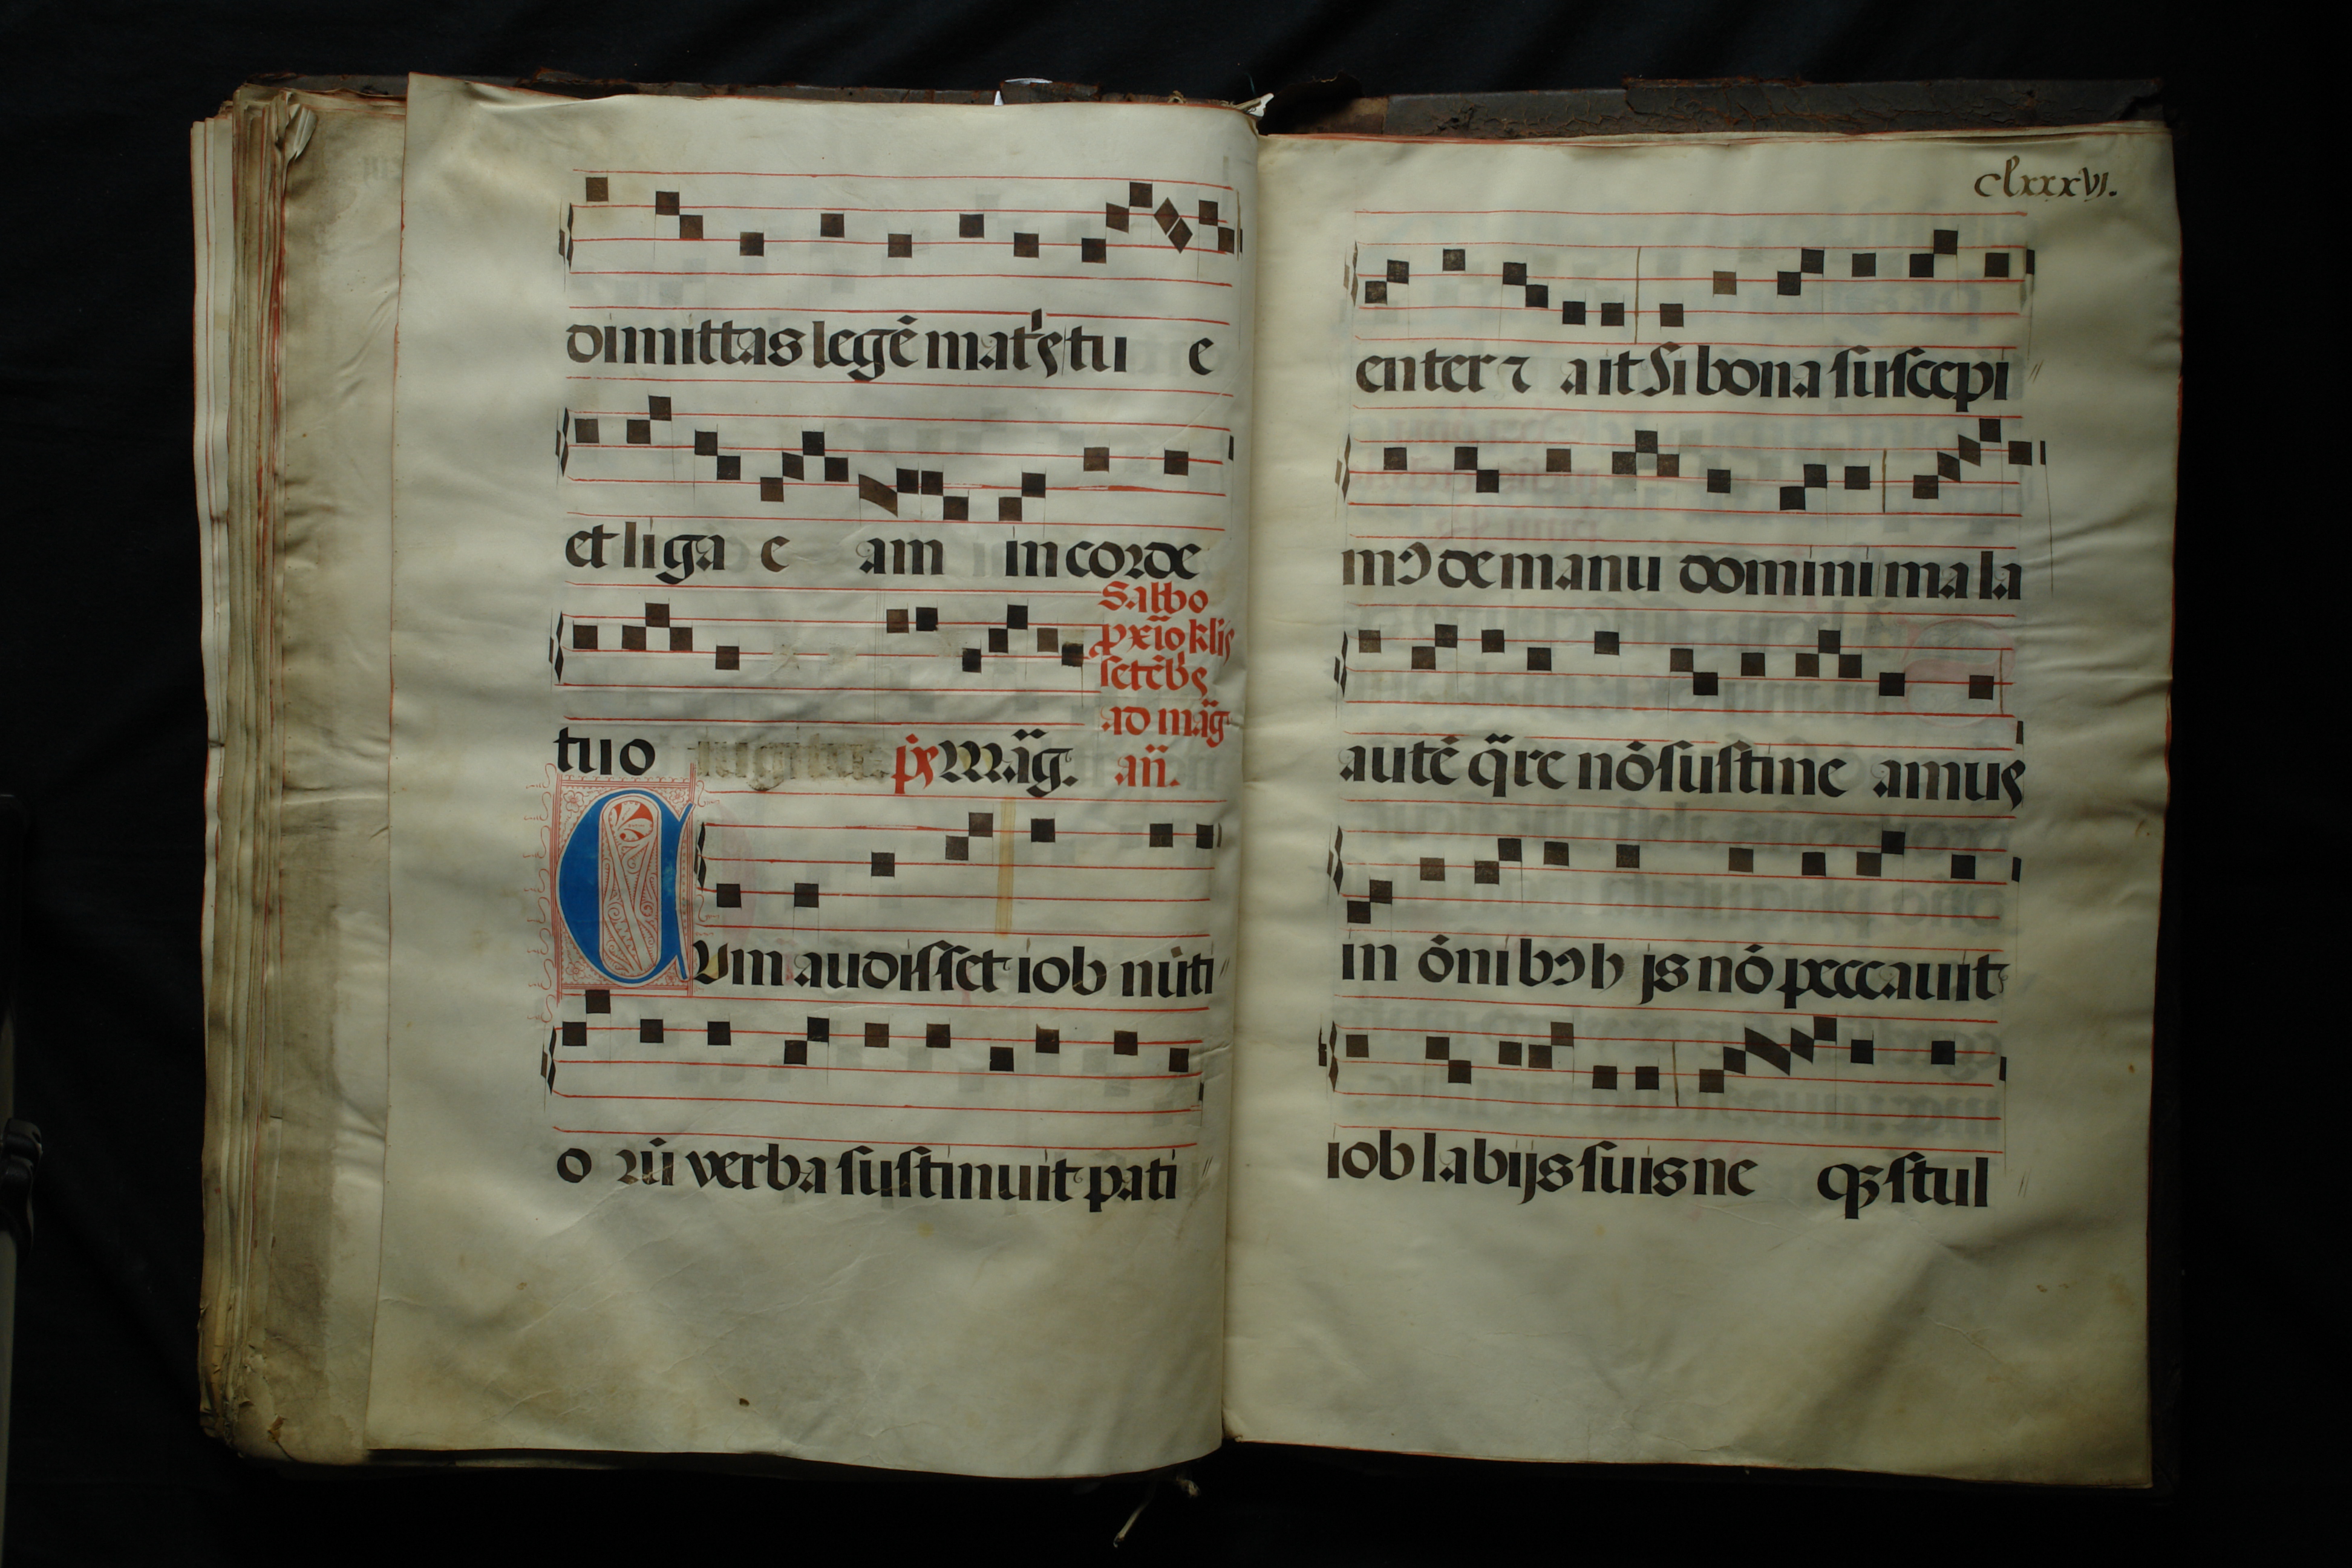 dimittas legē mat̉ꝭ tu e
et liga e am in corde
Sabbo
ꝓxīo klꝭ
setēbꝭ
ad mag̃
tuo p̃s Mag̃. añ.
CVm audisset iob nūti
o rū verba sustinuit pati
clxxxvj.
enter ⁊ ait Si bona suscepi
mꝰ de manu domini mala
autē q̃re nō sustine amus
in ōnibꝰ hijs nō peccauit
iob labijs suis ne qꝫ stul